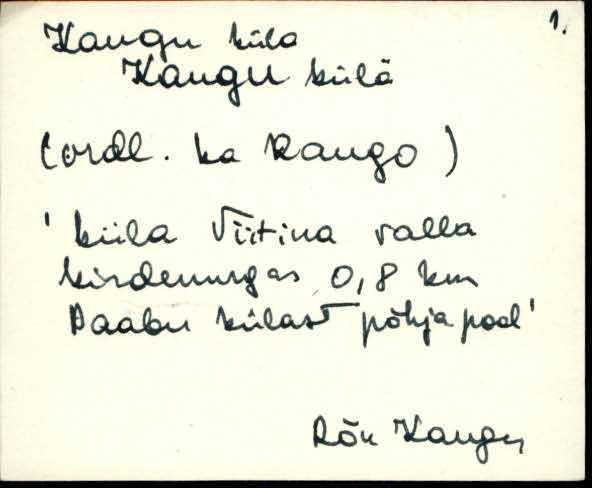 1.
Kangu küla
Kangu külä
(ordl. ka Kango)
' küla Viitina valla
kirdenurgas 0,8 km
Paabu külast põhja pool'
Rõu Kangu